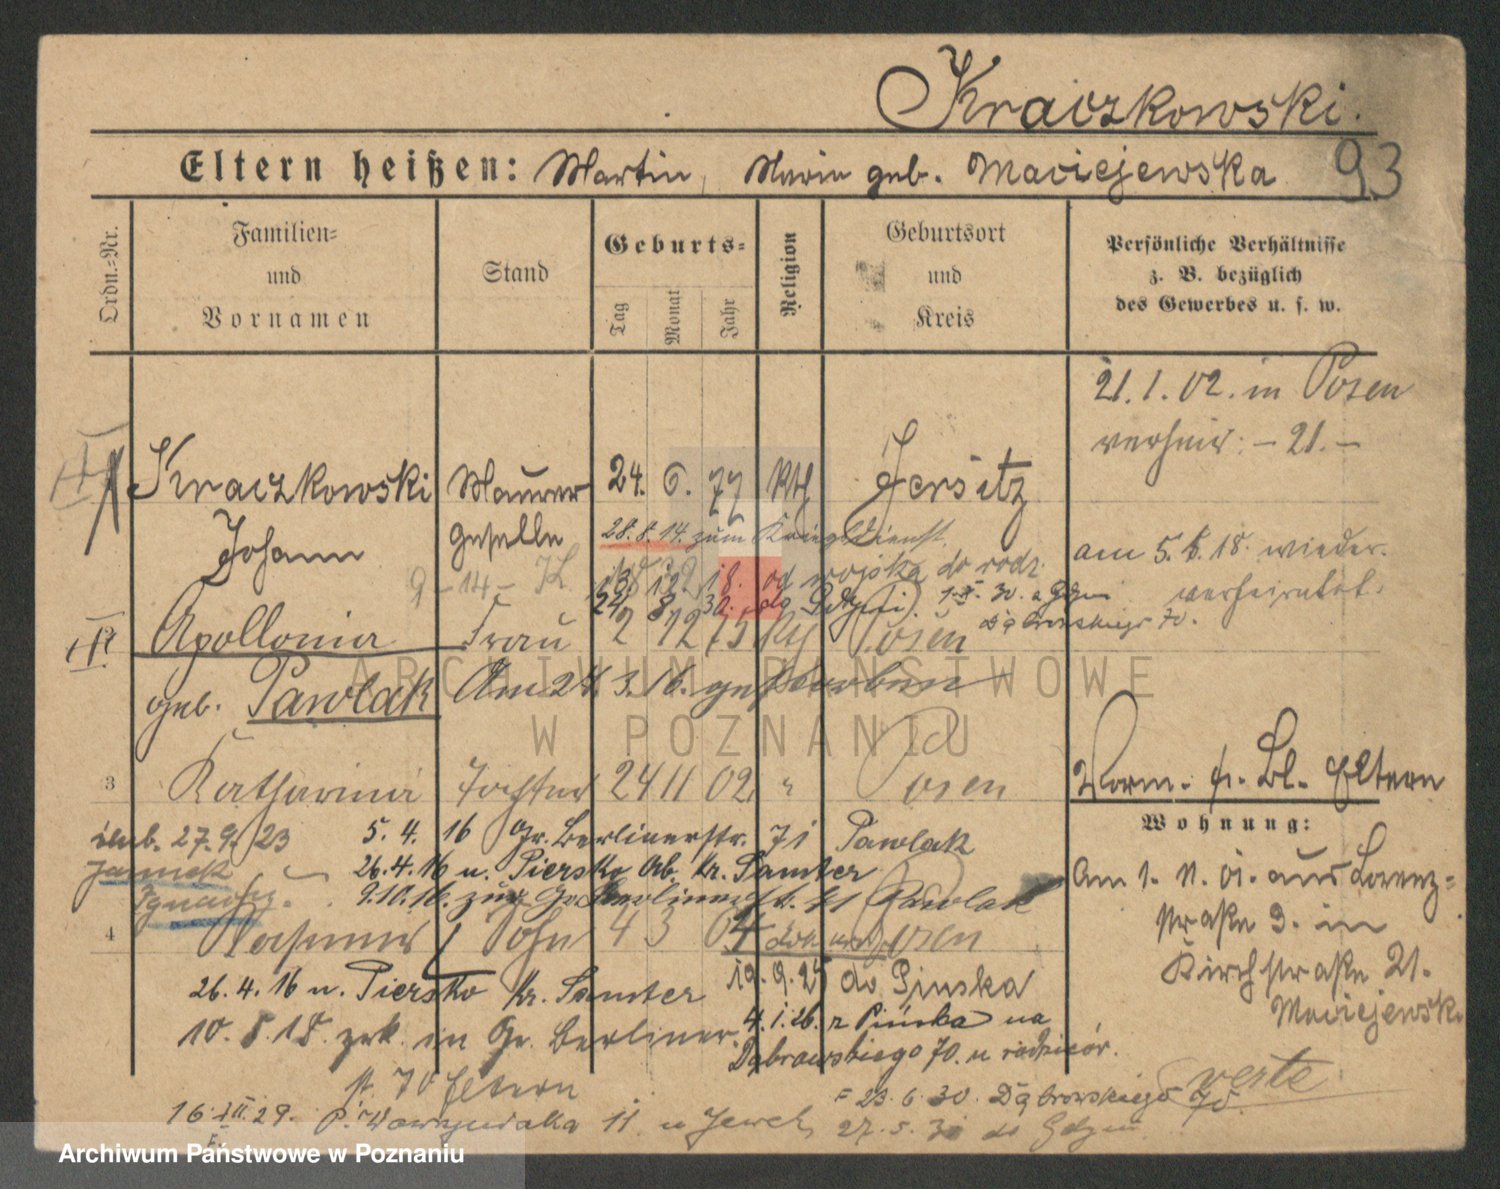 Kraczkowski.
Eltern heißen: Martin, Maria geb. Maciejewska
93
Ordn.=Nr.
Familien=
und
Vornamen
Stand
Geburts=
Tag
Monat
Jahr
Religion
Geburtsort
und
Kreis
Persönliche Verhältnisse
z. B. bezüglich
des Gewerbes u. s. w.
21. 1. 02. in Posen
verheir. - 21. -
Kraczkowski Maurer 24. 6. 77 Kth Jersitz
Johann geselle 28. 8. 14. zum Kriegsdienst.
am 5. 18. wieder-
verheiratet.
9 - 14 -
13 12 18. od wojska do rodz.
24 8 30. do Gdyni 30. z Gdyni
Dąbrowskiego 70.
Apollonia Frau 2 12 75 Kth Posen
geb. Pawlak Am 24. 3. 16. gestorben
3 Katharina Tochter 24 11 02 " Posen
Vorm. f. Bl. Eltern
Wohnung:
27. 9. 23 5. 4. 16 Gr. Berlinerstr. 71 Pawlak
Jannek 26. 4. 16 n. Piersko Kr. Samter
Ignacy 9.10.16. zur Gr. Berlinerstr. Pawlak
Am 1. 11. 01. aus Lorenz=
straße 3. in
Kirchstraße 21.
Maciejewsk.
4 Kasimir Sohn 4 3 04 Posen
26. 4. 16 n. Piersko Kr. Samter
19. 9. 25 do Pińska
10. 8. 18. zrk. in Gr. Berliner.
4. 1. 26. z Pińska na
Dąbrowskiego 70. u rodziców.
str. 70 Eltern
verte
16. 29. P. Wawrzyniaka 11
23. 6. 30. Dąbrowskiego 70.
27. 5. 3 do Gdyni
ARCHIWUM PAŃSTWOWE
W POZNANIU
Archiwum Państwowe w Poznaniu